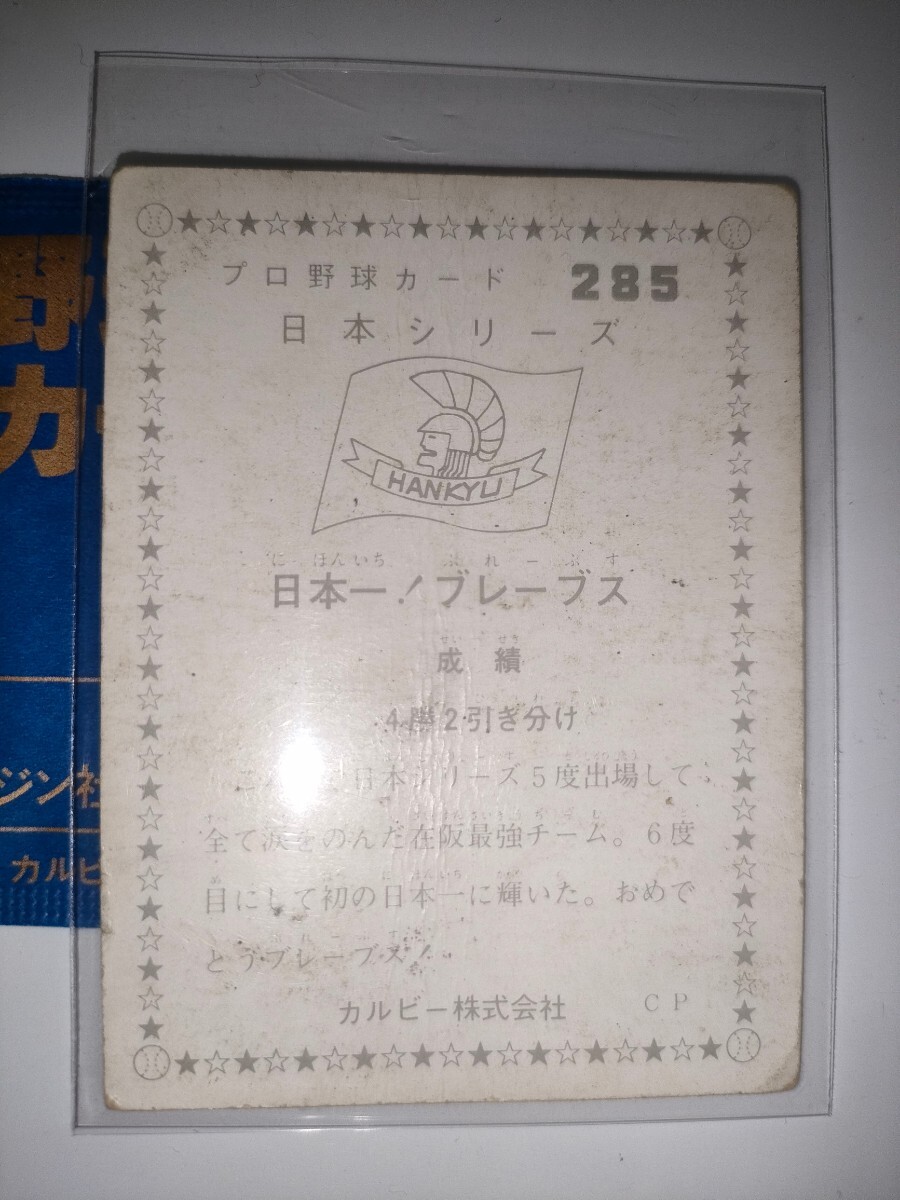 プロ野球カード 285
日本シリーズ
HANKYU
にほんいち ぶれーぶす
日本一！ブレーブス
せいせき
成績
4勝2引き分け
日本シリーズ5度出場して
全て涙をのんだ在阪最強チーム。6度
目にして初の日本一に輝いた。おめで
とうブレーブス！
カルビー株式会社 CP
野
カ
ジン社
カルビ